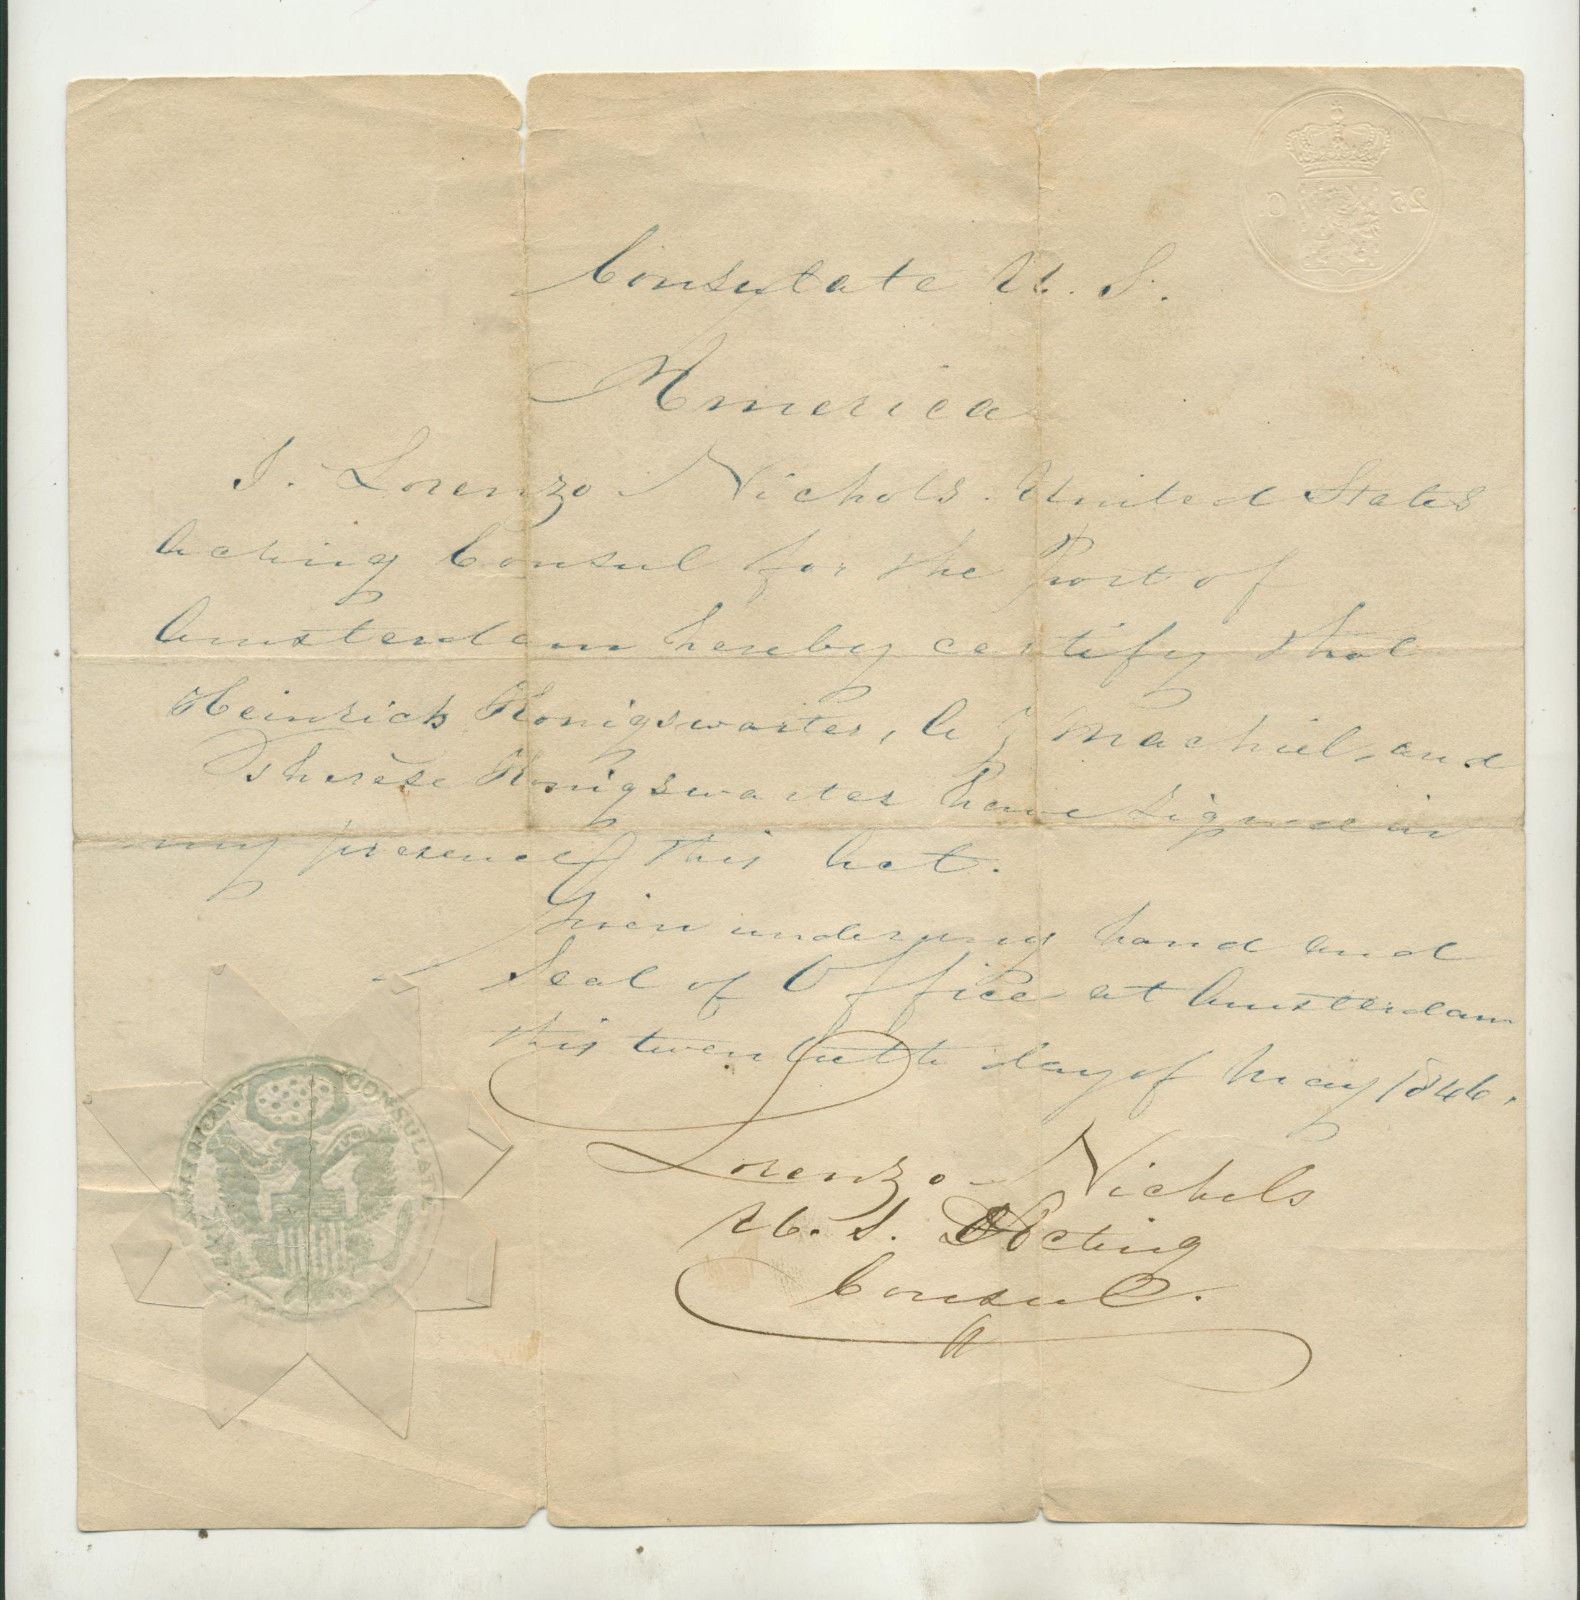 25 C.
Consulate U. S.
America
I. Lorenzo Nichols. United States
Acting Consul for the Port of
Amsterdam hereby certify that
Heinrich Konigswarter, A Z Machiel, and
Therèse Konigswarter have signed in
my presence this Act.
Given under my hand and
Seal of Office at Amsterdam
this twentieth day of May 1846.
Lorenzo Nichols
U. S. Acting
Consul.
AMERICAN CONSULATE